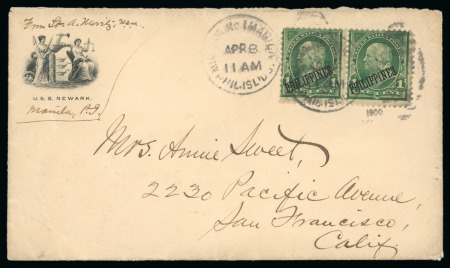 U.S.S. NEWARK.
Manila, P.I.
APR 8
11 AM
PHIL. ISL'DS
PHILIPPINES
PHILIPPINES
1
1900
Mrs. Annie Sweet,
2230 Pacific Avenue,
San Francisco,
Calif.